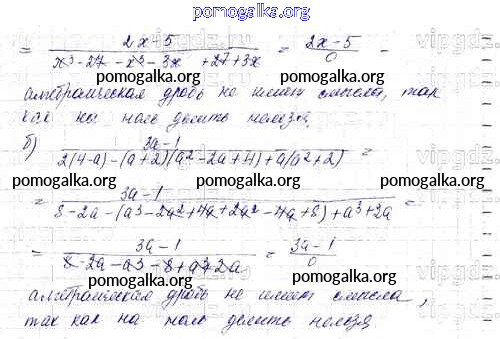 pomogalka.org
= (2x-5)/(x³-27-x³-3x+27+3x) = (2x-5)/0 -
pomogalka.org pomogalka.org
алгебраическая дробь не имеет смысла, так
как на ноль делить нельзя.
б) (3a-1)/(2(4-a)-(a+2)(a²-2a+4)+a(a²+2)) =
pomogalka.org pomogalka.org
= (3a-1)/(8-2a-(a³-2a²+4a+2a²-4a+8)+a³+2a) =
pomogalka.org pomogalka.org
= (3a-1)/(8-2a-a³-8+a³+2a) = (3a-1)/0
pomogalka.org pomogalka.org
алгебраическая дробь не имеет смысла,
так как на ноль делить нельзя
pomogalka.org pomogalka.org